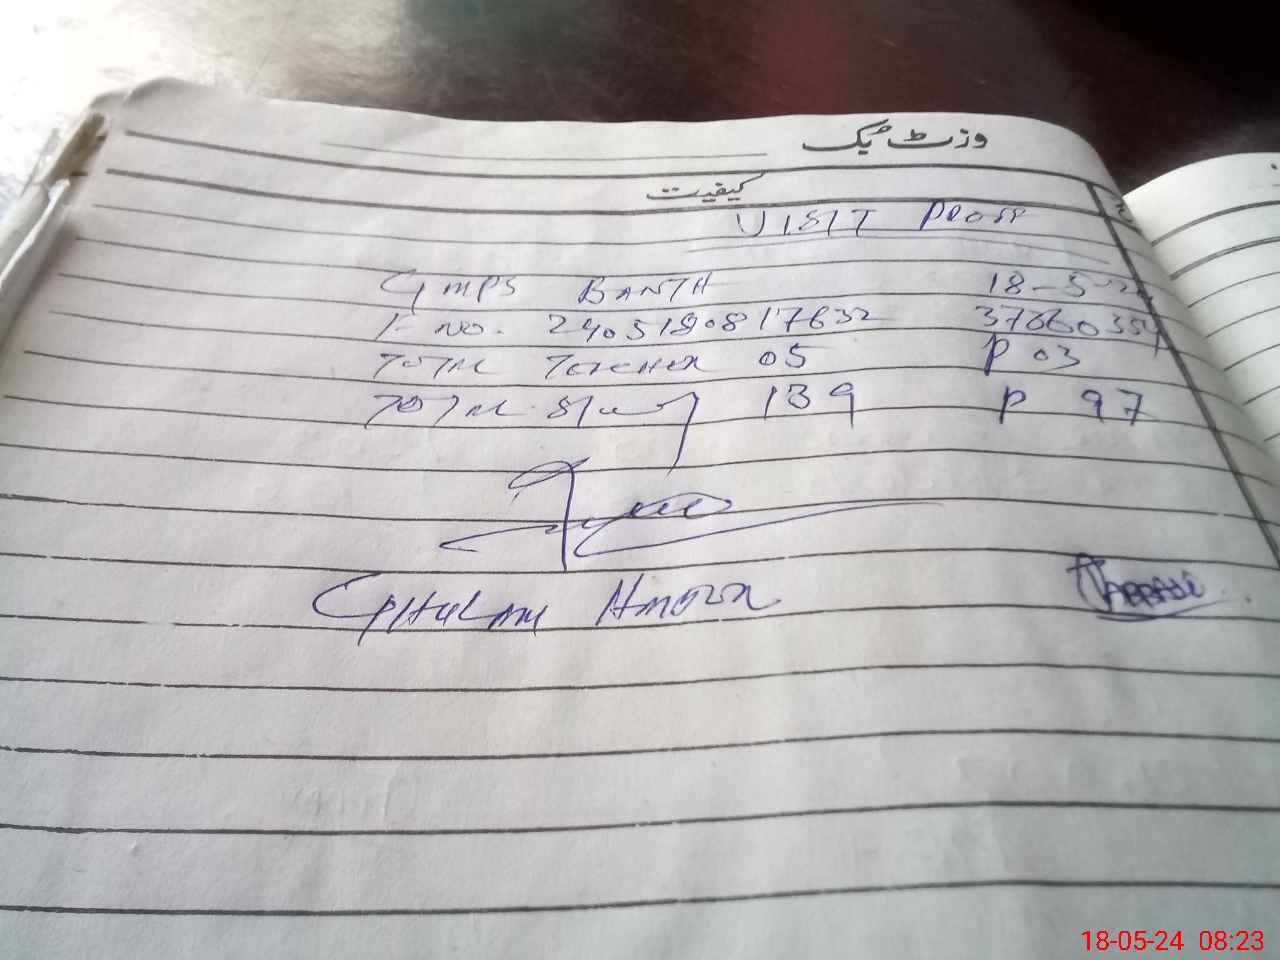 وزٹ بک
کیفیت
VISIT PROFF
GMPS BANTH 18-5-24
F NO. 2405180817632 37660354
TOTAL TEACHER 05 P 03
TOTAL 139 P 97
GHULAM
18-05-24 08:23